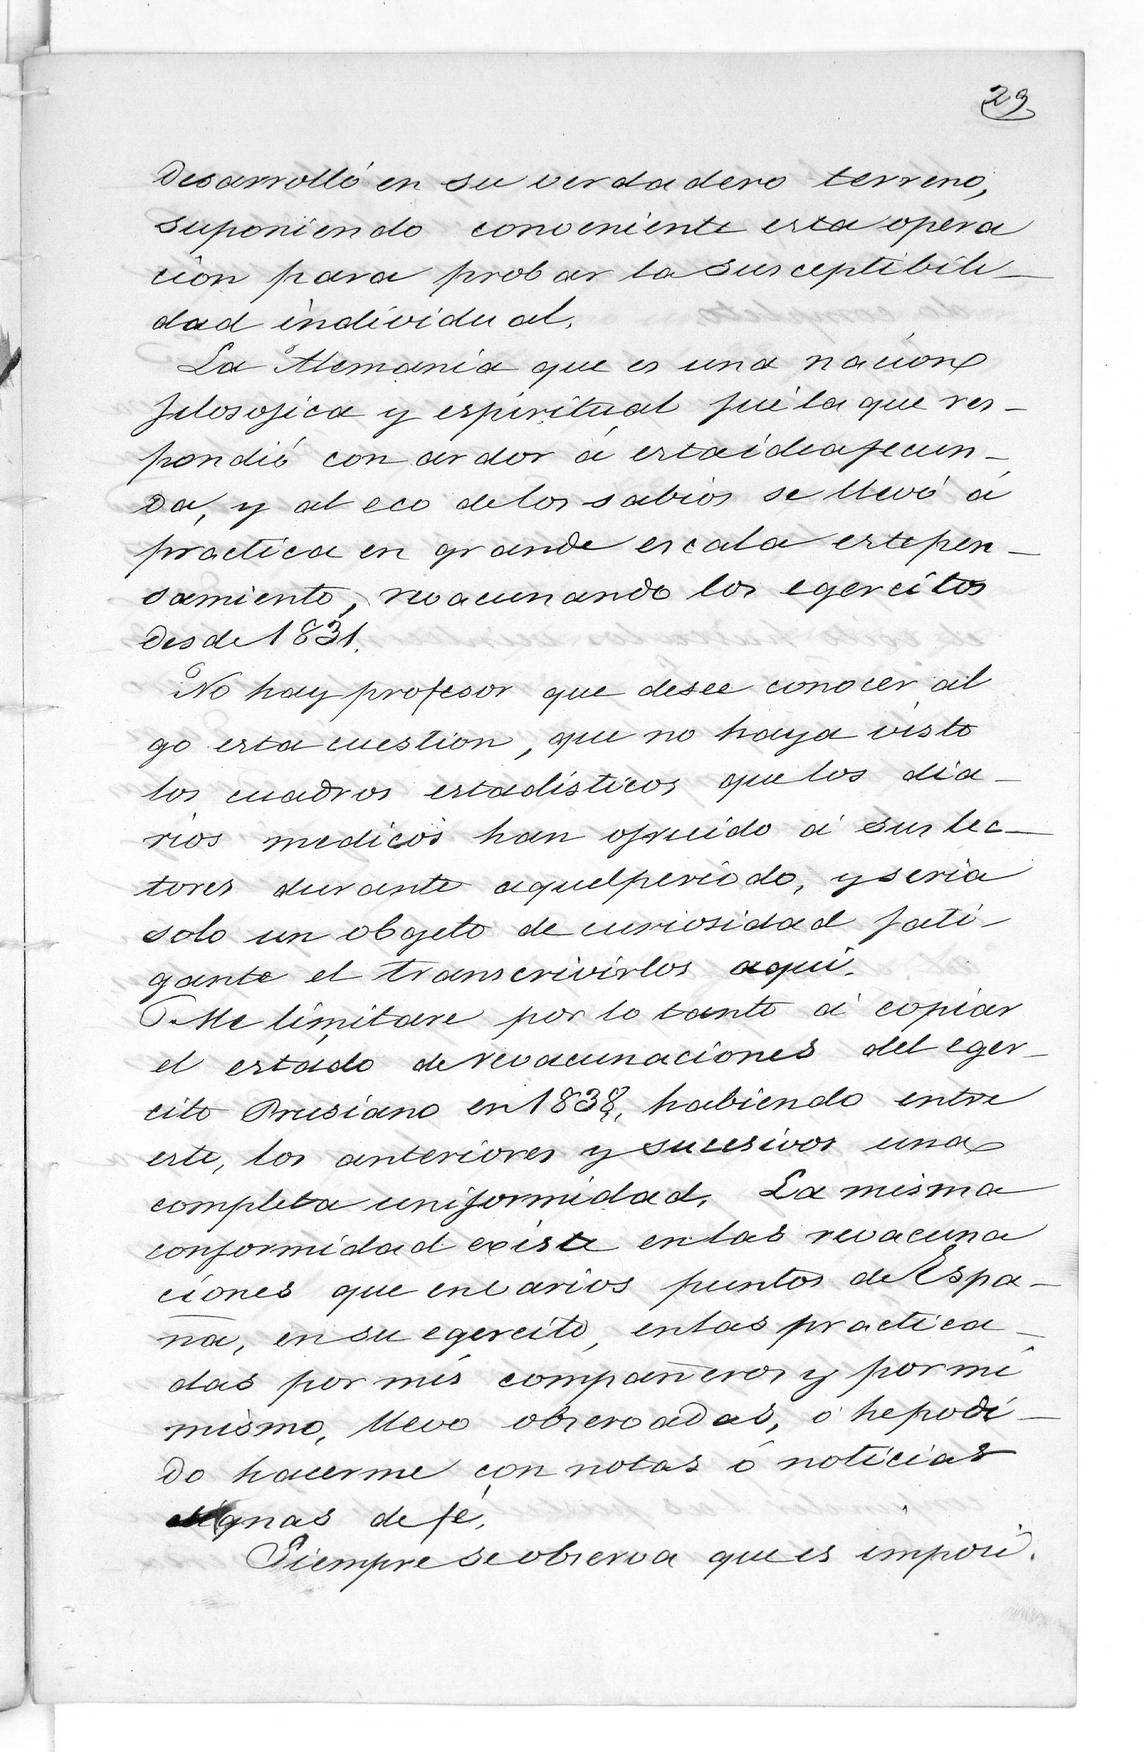 29
desarrolló en su verdadero terreno,
suponiendo conveniente esta opera
cion para probar la susceptibili-
dad individual.
La Alemania que es una nacion
filosofica y espiritual fué la que res-
pondió con ardor á esta idea fecun-
da, y al eco de los sabios se llevó á
practica en grande escala este pen-
samiento, revacunando los egercitos
desde 1831.
No hay profesor que desee conocer al
go esta cuestion, que no haya visto
los cuadros estadísticos que los dia-
rios medicos han ofrecido á sus lec-
tores durante aquel periodo, y seria
solo un objeto de curiosidad fati-
gante el transcrivirlos aqui.
Me limitare por lo tanto á copiar
el estado de revacunaciones del eger-
cito Prusiano en 1838, habiendo entre
este, los anteriores y sucesivos una
completa uniformidad. La misma
conformidad existe en las revacuna
ciones que en varios puntos de Espa-
ña, en su egercito, en las practica-
das por mis compañeros y por mi
mismo, llevo observadas, ó he podi-
do hacerme con notas ó noticias
dignas de fé.
Siempre se observa que es imposi.